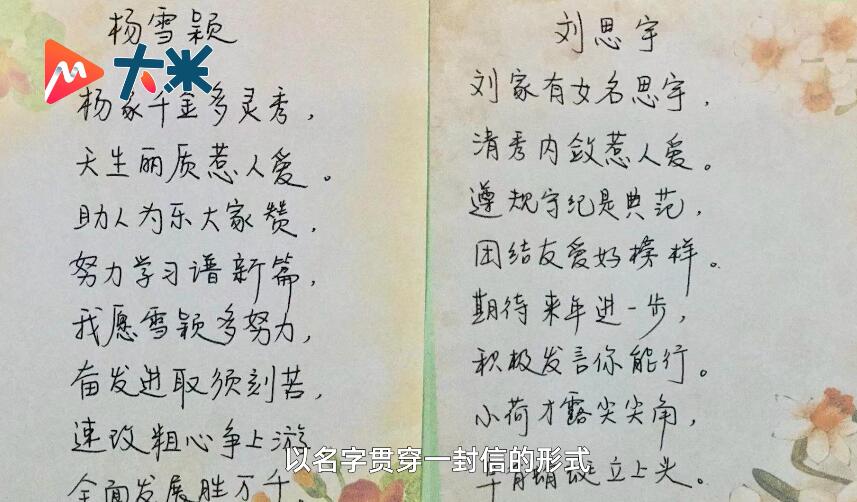 杨雪颖
大米
杨家千金多灵秀，
天生丽质惹人爱。
助人为乐大家赞，
努力学习谱新篇，
我愿雪颖多努力，
奋发进取须刻苦，
速改粗心争上游
全面发展胜万千。
刘思宇
刘家有女名思宇，
清秀内敛惹人爱。
遵规守纪是典范，
团结友爱好榜样。
期待来年进一步，
积极发言你能行。
小荷才露尖尖角，
早有蜻蜓立上头。
以名字贯穿一封信的形式